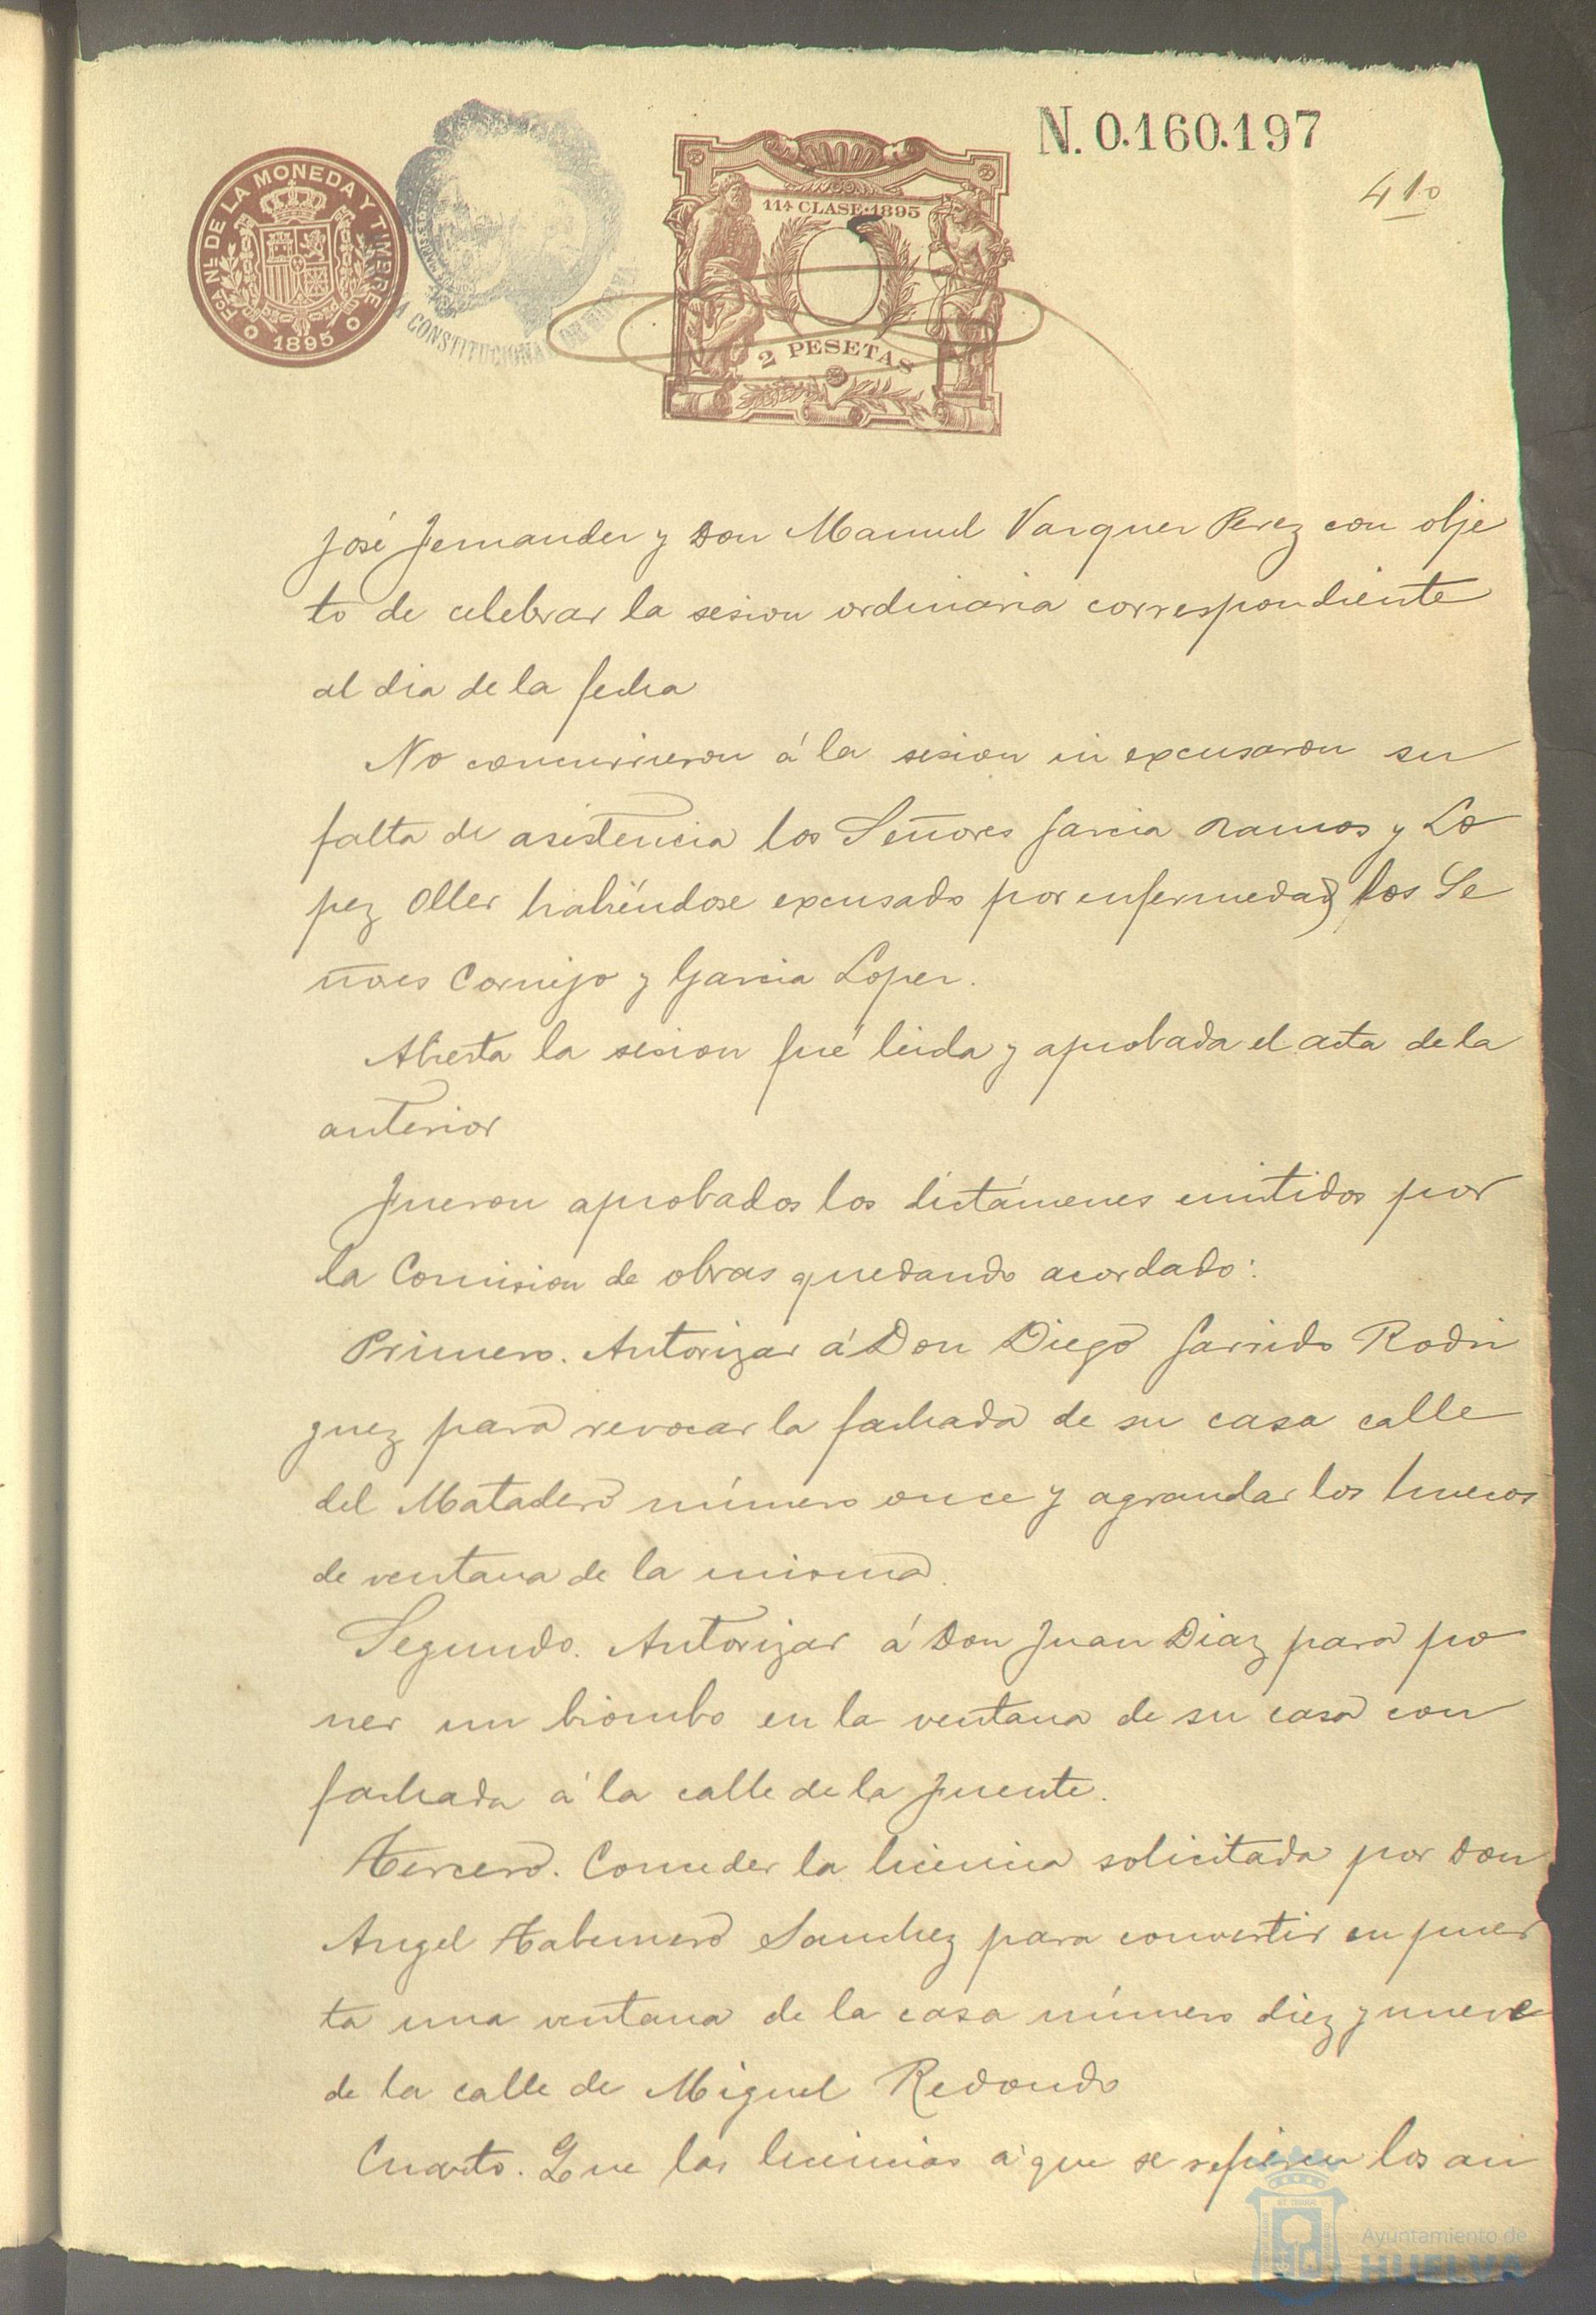 N. 0.160.197
410
Fca. Nl. DE LA MONEDA Y TIMBRE
1895
A CONSTITUCIONAL DE HUELVA
11ª CLASE·1895
2 PESETAS
José Fernandez y Don Manuel Vazquez Perez con obje
to de celebrar la sesion ordinaria correspondiente
al dia de la fecha
No concurrieron á la sesion ni excusaron su
falta de asistencia los Señores Garcia Ramos y Lo
pez Oller habiéndose excusado por enfermedad los Se
ñores Cornejo y Garcia Lopez.
Abierta la sesion fué leida y aprobada el acta de la
anterior
Fueron aprobados los dictámenes emitidos por
la Comision de obras quedando acordado:
Primero. Autorizar á Don Diego Garrido Rodri
guez para revocar la fachada de su casa calle
del Matadero número once y agrandar los huecos
de ventana de la misma.
Segundo. Autorizar á Don Juan Diaz para po
ner un biombo en la ventana de su casa con
fachada á la calle de la Fuente.
Tercero. Conceder la licencia solicitada por Don
Angel Tabernero Sanchez para convertir en puer
ta una ventana de la casa número diez y nueve
de la calle de Miguel Redondo
Cuarto. Que las licencias á que se refieren los an
Ayuntamiento de
HUELVA